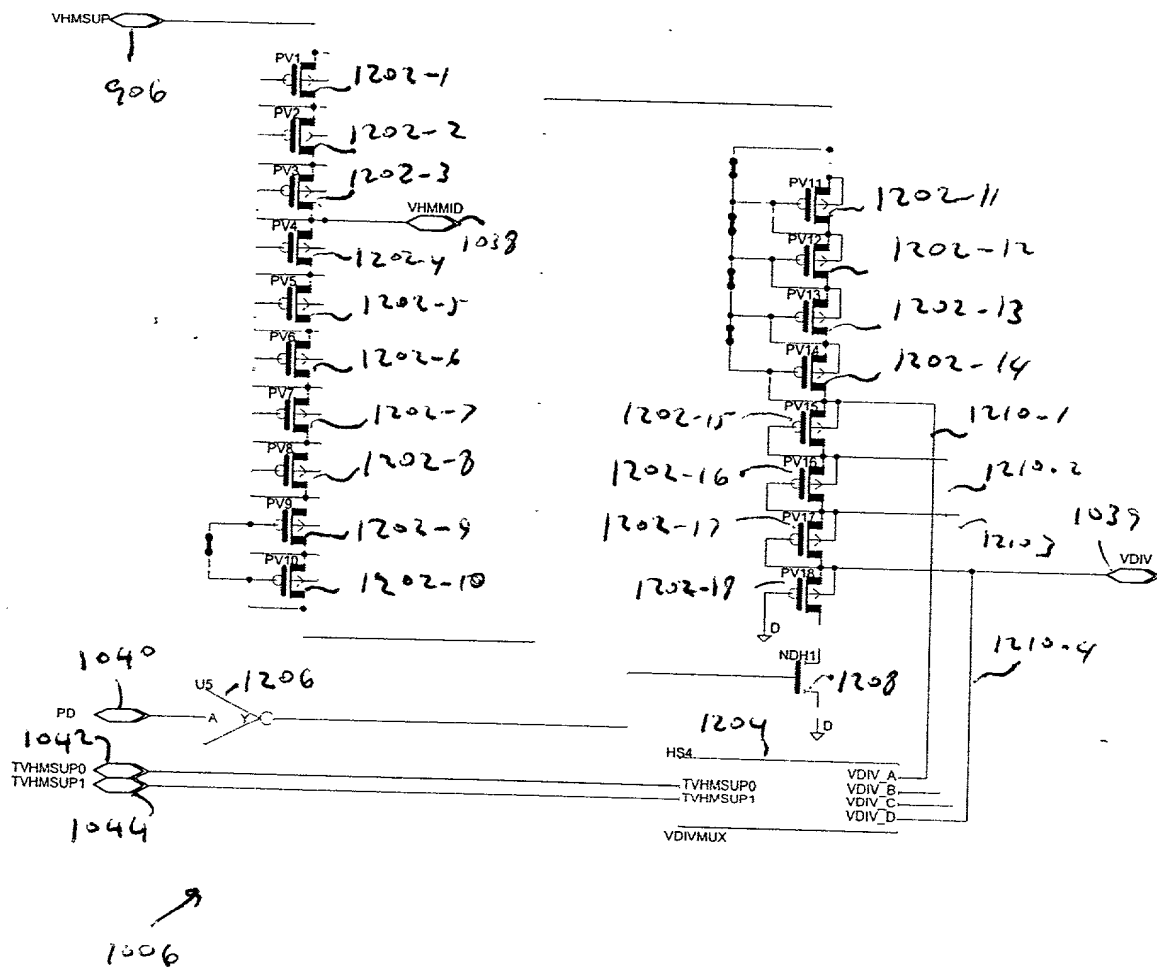 VHMSUP
906
PV1
1202-1
PV2
1202-2
PV3
1202-3
VHMMID
1038
PV4
1202-4
PV5
1202-5
PV6
1202-6
PV7
1202-7
PV8
1202-8
PV9
1202-9
PV10
1202-10
PV11
1202-11
PV12
1202-12
PV13
1202-13
PV14
1202-14
1202-15
PV15
1210-1
1202-16
PV16
1210-2
1202-17
PV17
1210 3
1039
VDIV
1202-18
PV18
D
1210-4
NDH1
1208
D
1040
PD
U5
1206
A
Y
1042
TVHMSUP0
TVHMSUP1
1044
1204
HS4
TVHMSUP0
TVHMSUP1
VDIV_A
VDIV_B
VDIV_C
VDIV_D
VDIVMUX
1006